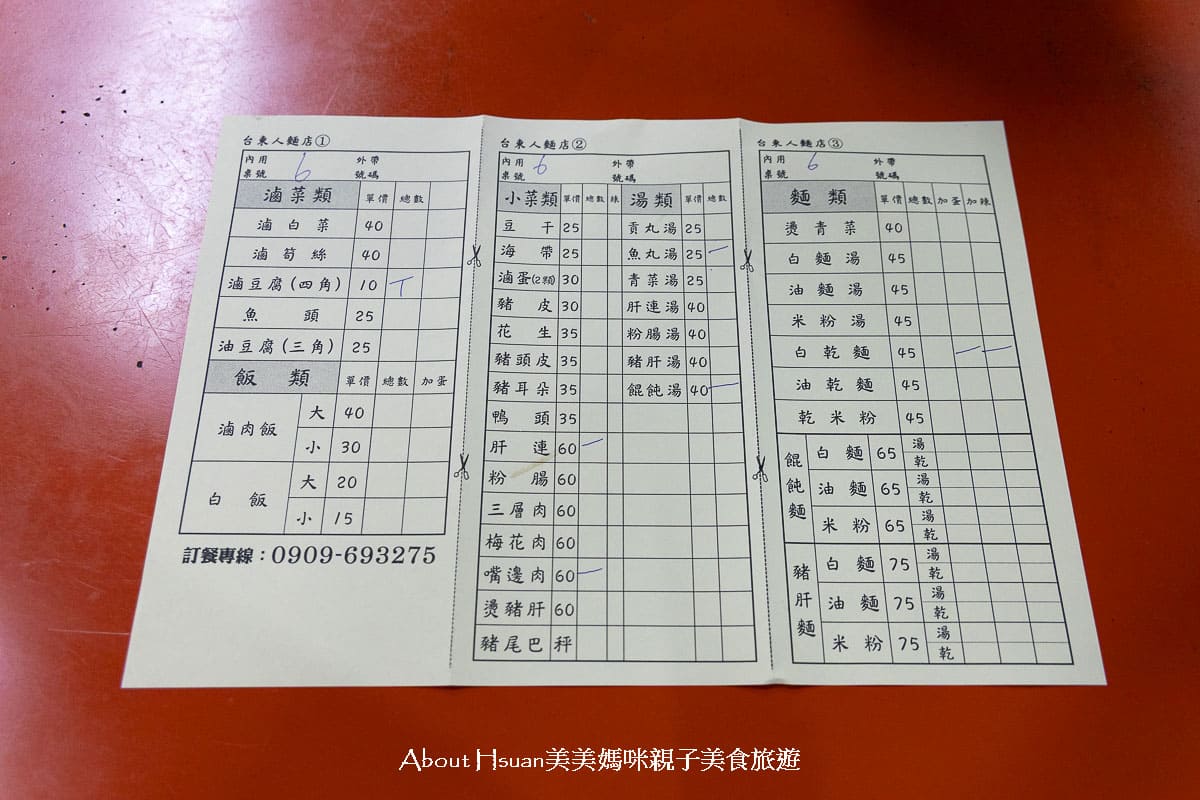 台東人麵店①
內用 桌號 6 外帶 號碼
滷菜類 單價 總數
滷白菜 40
滷筍絲 40
滷豆腐(四角) 10 丅
魚頭 25
油豆腐(三角) 25
飯類 單價 總數 加蛋
滷肉飯 大 40
小 30
白飯 大 20
小 15
訂餐專線：0909-693275
台東人麵店②
內用 桌號 6 外帶 號碼
小菜類 單價 總數 辣 湯類 單價 總數
豆干 25 貢丸湯 25
海帶 25 魚丸湯 25 一
滷蛋(2顆) 30 青菜湯 25
豬皮 30 肝連湯 40
花生 35 粉腸湯 40
豬頭皮 35 豬肝湯 40
豬耳朵 35 餛飩湯 40 一
鴨頭 35
肝連 60 一
粉腸 60
三層肉 60
梅花肉 60
嘴邊肉 60 一
燙豬肝 60
豬尾巴 秤
台東人麵店③
內用 桌號 6 外帶 號碼
麵類 單價 總數 加蛋 加辣
燙青菜 40
白麵湯 45
油麵湯 45
米粉湯 45
白乾麵 45 一 一
油乾麵 45
乾米粉 45
餛飩麵 白麵 65 湯 乾
油麵 65 湯 乾
米粉 65 湯 乾
豬肝麵 白麵 75 湯 乾
油麵 75 湯 乾
米粉 75 湯 乾
About Hsuan美美媽咪親子美食旅遊